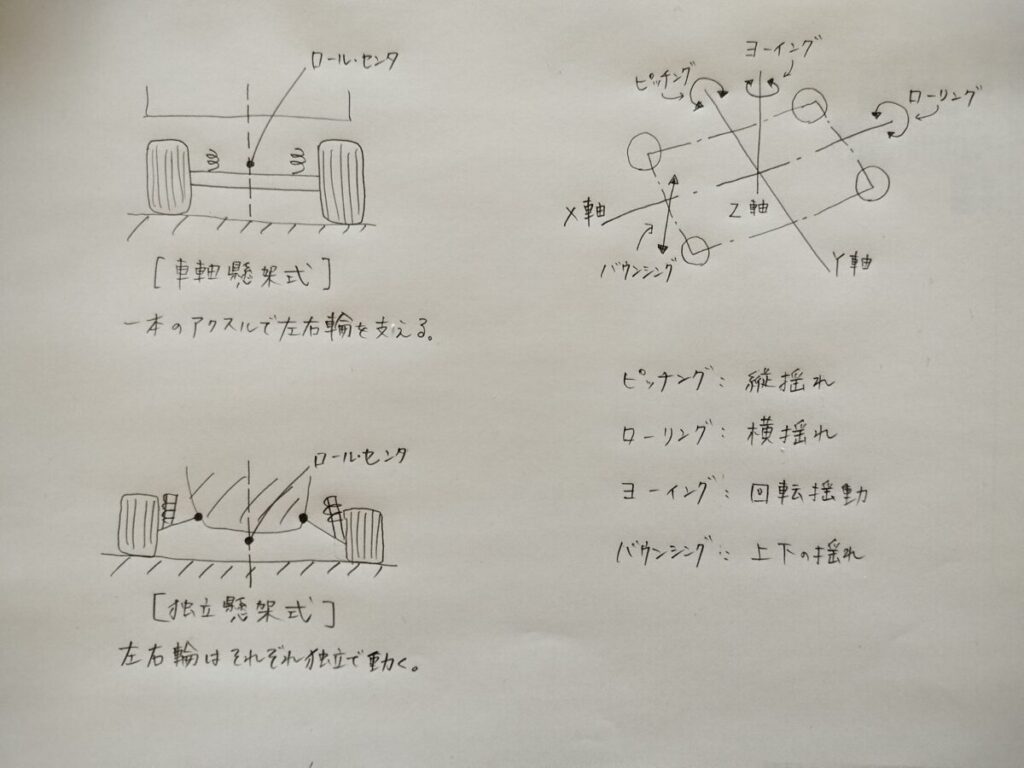 ロール・センタ
[車軸懸架式]
一本のアクスルで左右輪を支える。
ロール・センタ
[独立懸架式]
左右輪はそれぞれ独立で動く。
ヨーイング
ピッチング
ローリング
X軸
Z軸
Y軸
バウンシング
ピッチング: 縦揺れ
ローリング: 横揺れ
ヨーイング: 回転揺動
バウンシング: 上下の揺れ